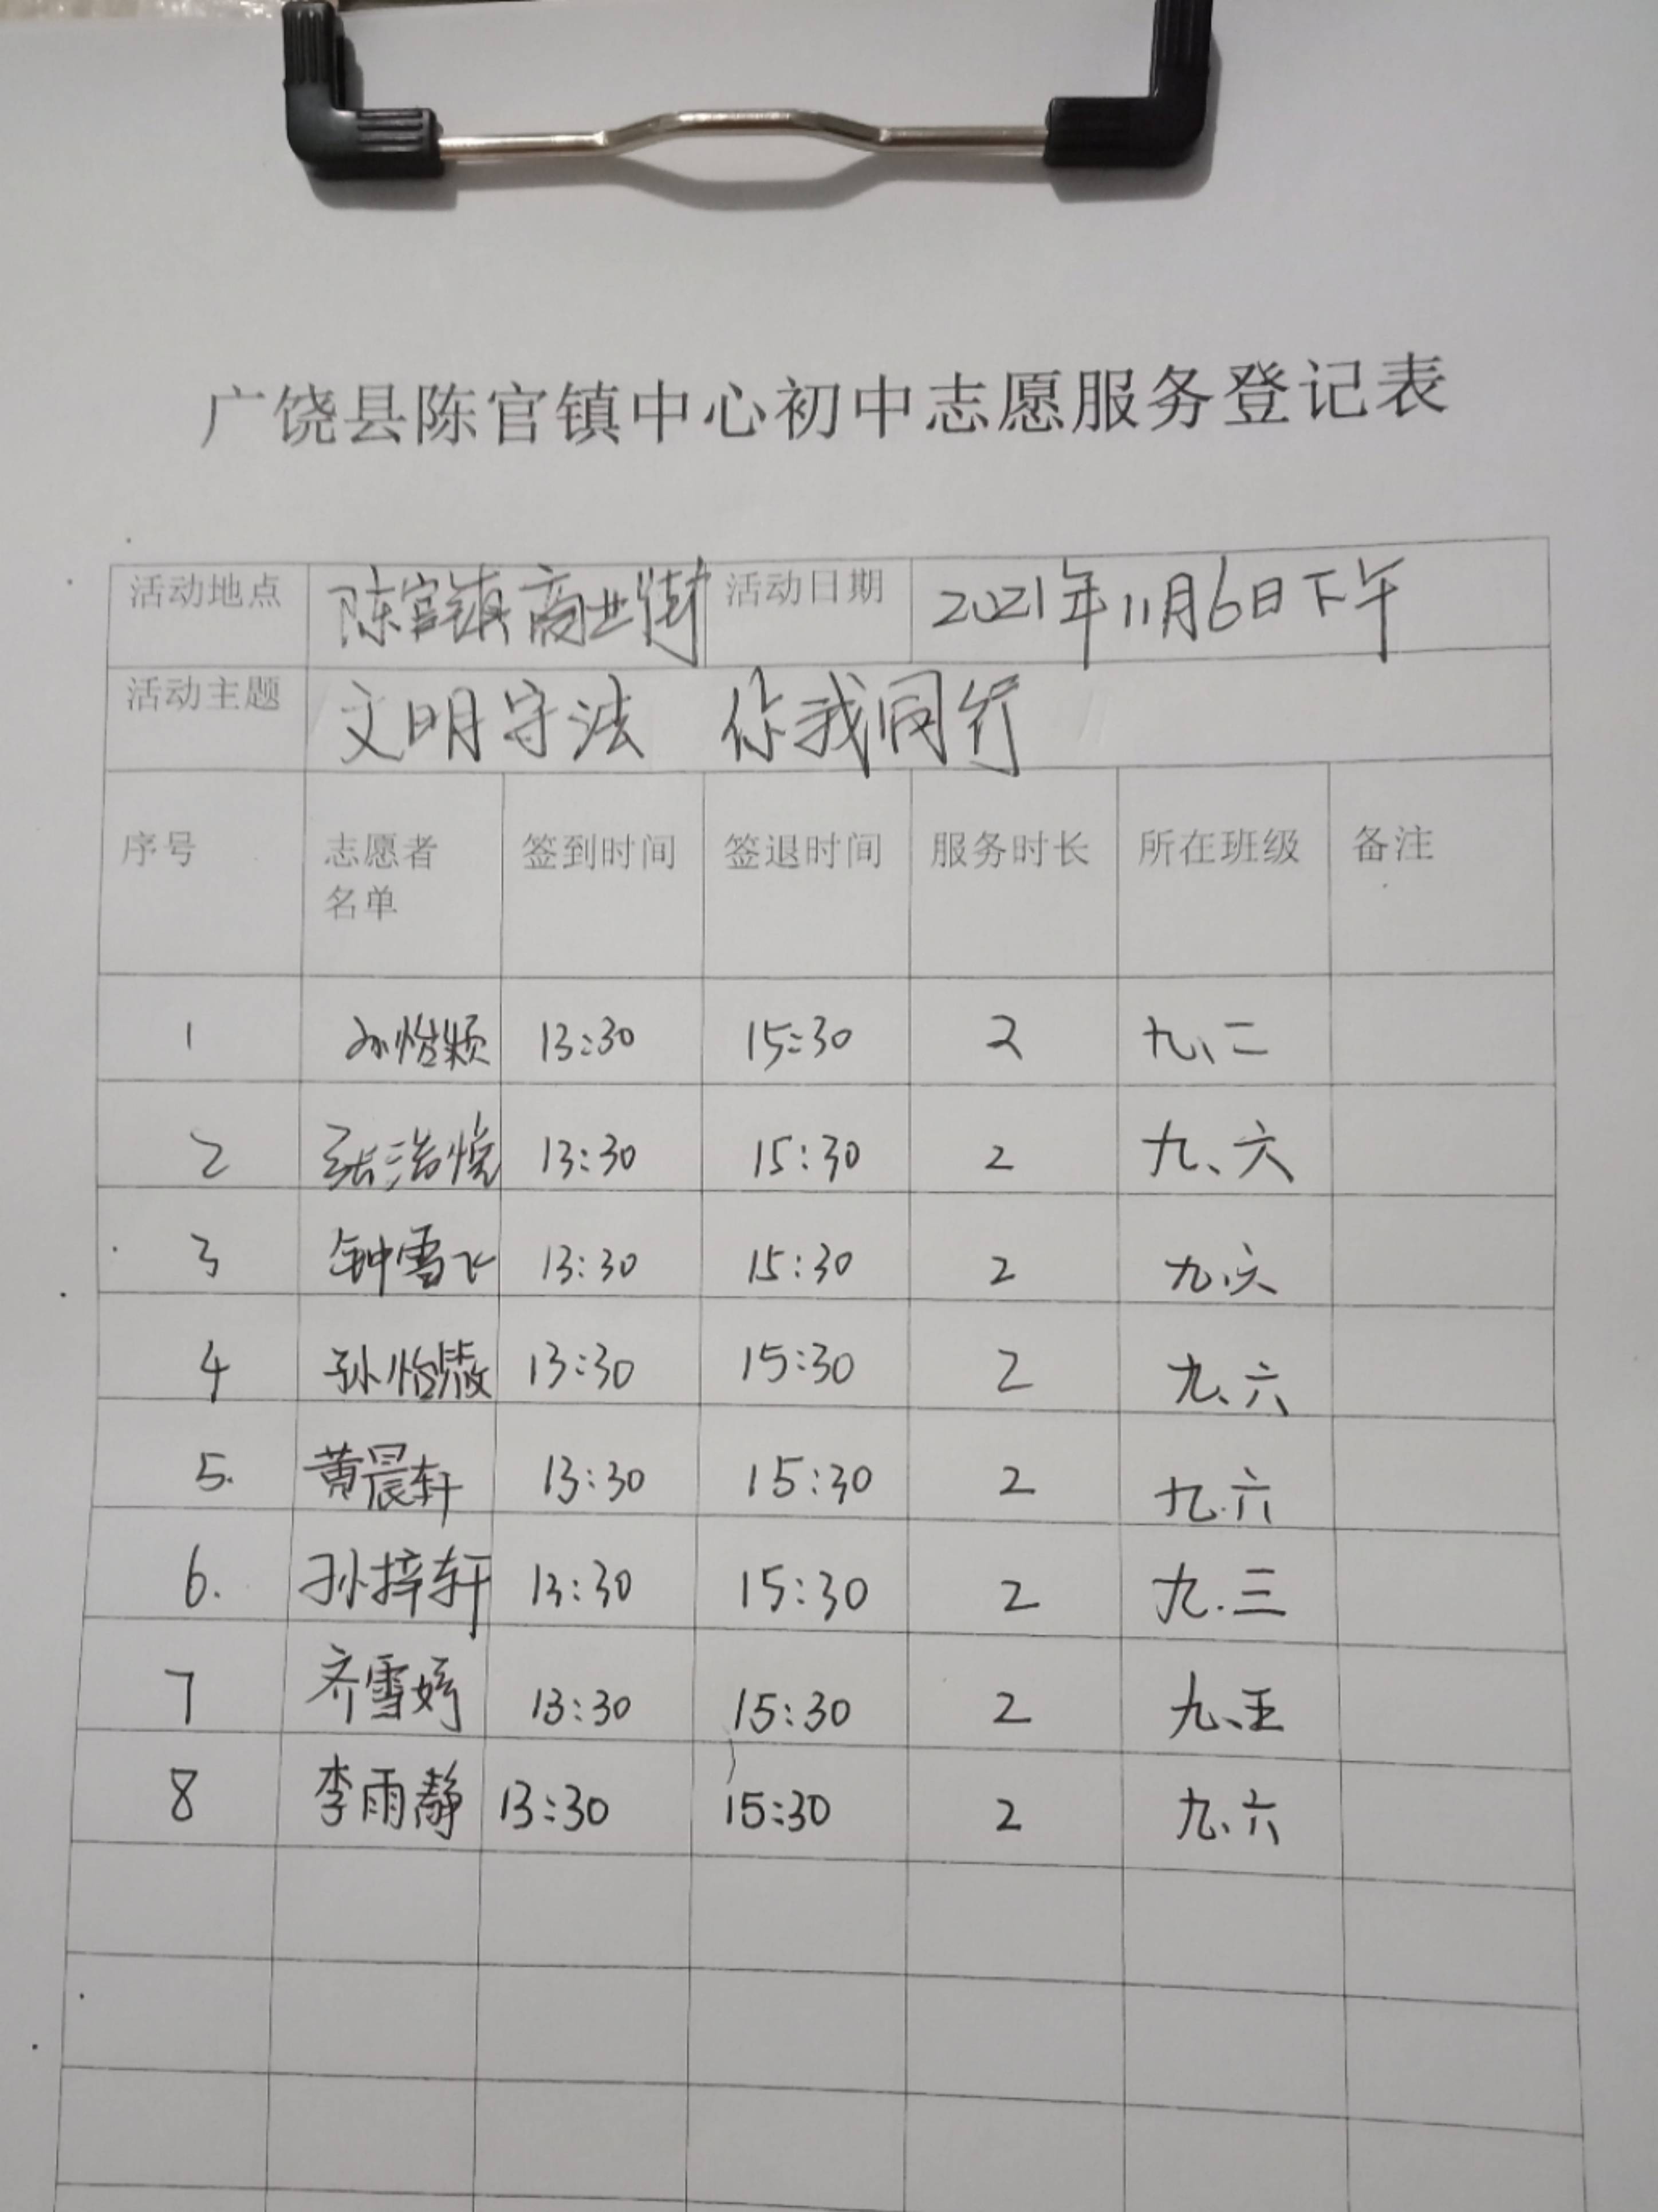 广饶县陈官镇中心初中志愿服务登记表
活动地点 陈官镇商业街 活动日期 2021年11月6日下午
活动主题 文明守法 你我同行
序号 志愿者名单 签到时间 签退时间 服务时长 所在班级 备注
1 孙怡颖 13:30 15:30 2 九、二
2 张浩悦 13:30 15:30 2 九、六
3 钟雪飞 13:30 15:30 2 九、六
4 孙怡 13:30 15:30 2 九、六
5. 黄晨轩 13:30 15:30 2 九.六
6. 孙梓轩 13:30 15:30 2 九.三
7 齐雪婷 13:30 15:30 2 九、五
8 李雨静 13:30 15:30 2 九、六